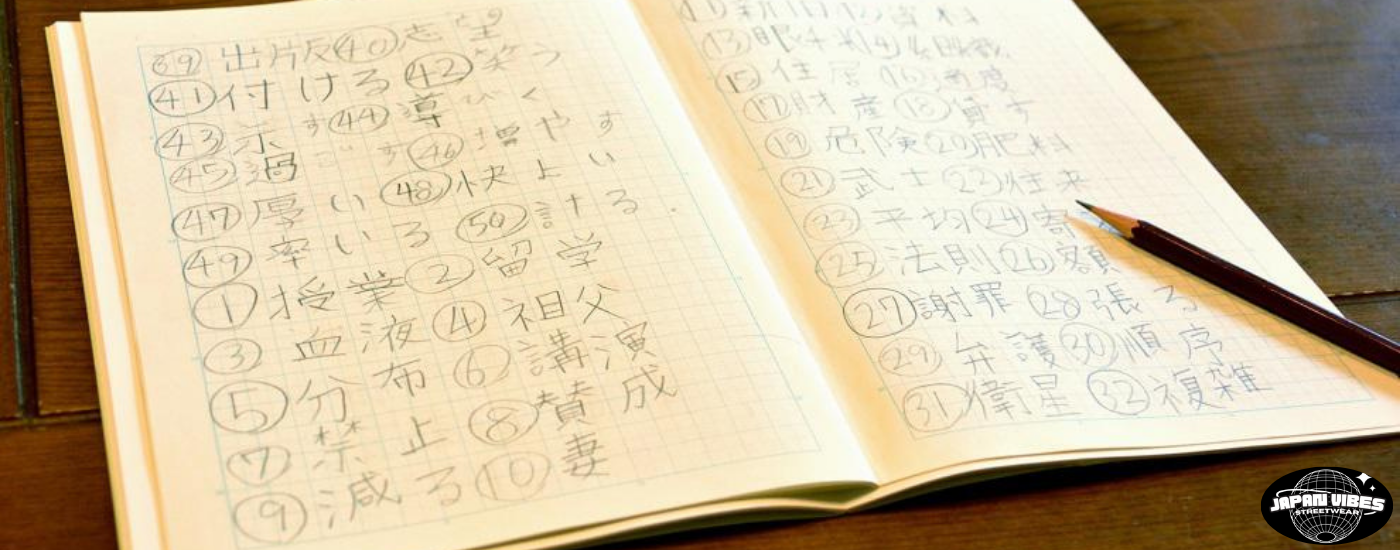 ㊴出版㊵志望
㊶付ける㊷笑う
㊸示す㊹導びく
㊺過ごす㊻増やす
㊼厚い㊽快よい
㊾率いる㊿計る
①授業②留学
③血液④祖父
⑤分布⑥講演
⑦禁止⑧賛成
⑨減る⑩妻
⑬眼科
⑮住居⑯過度
⑰財産⑱貸す
⑲危険⑳肥料
㉑武士㉒往来
㉓平均㉔寄
㉕法則㉖額
㉗謝罪㉘張る
㉙弁護㉚順序
㉛衛星㉜複雑
JAPAN VIBES
STREETWEAR